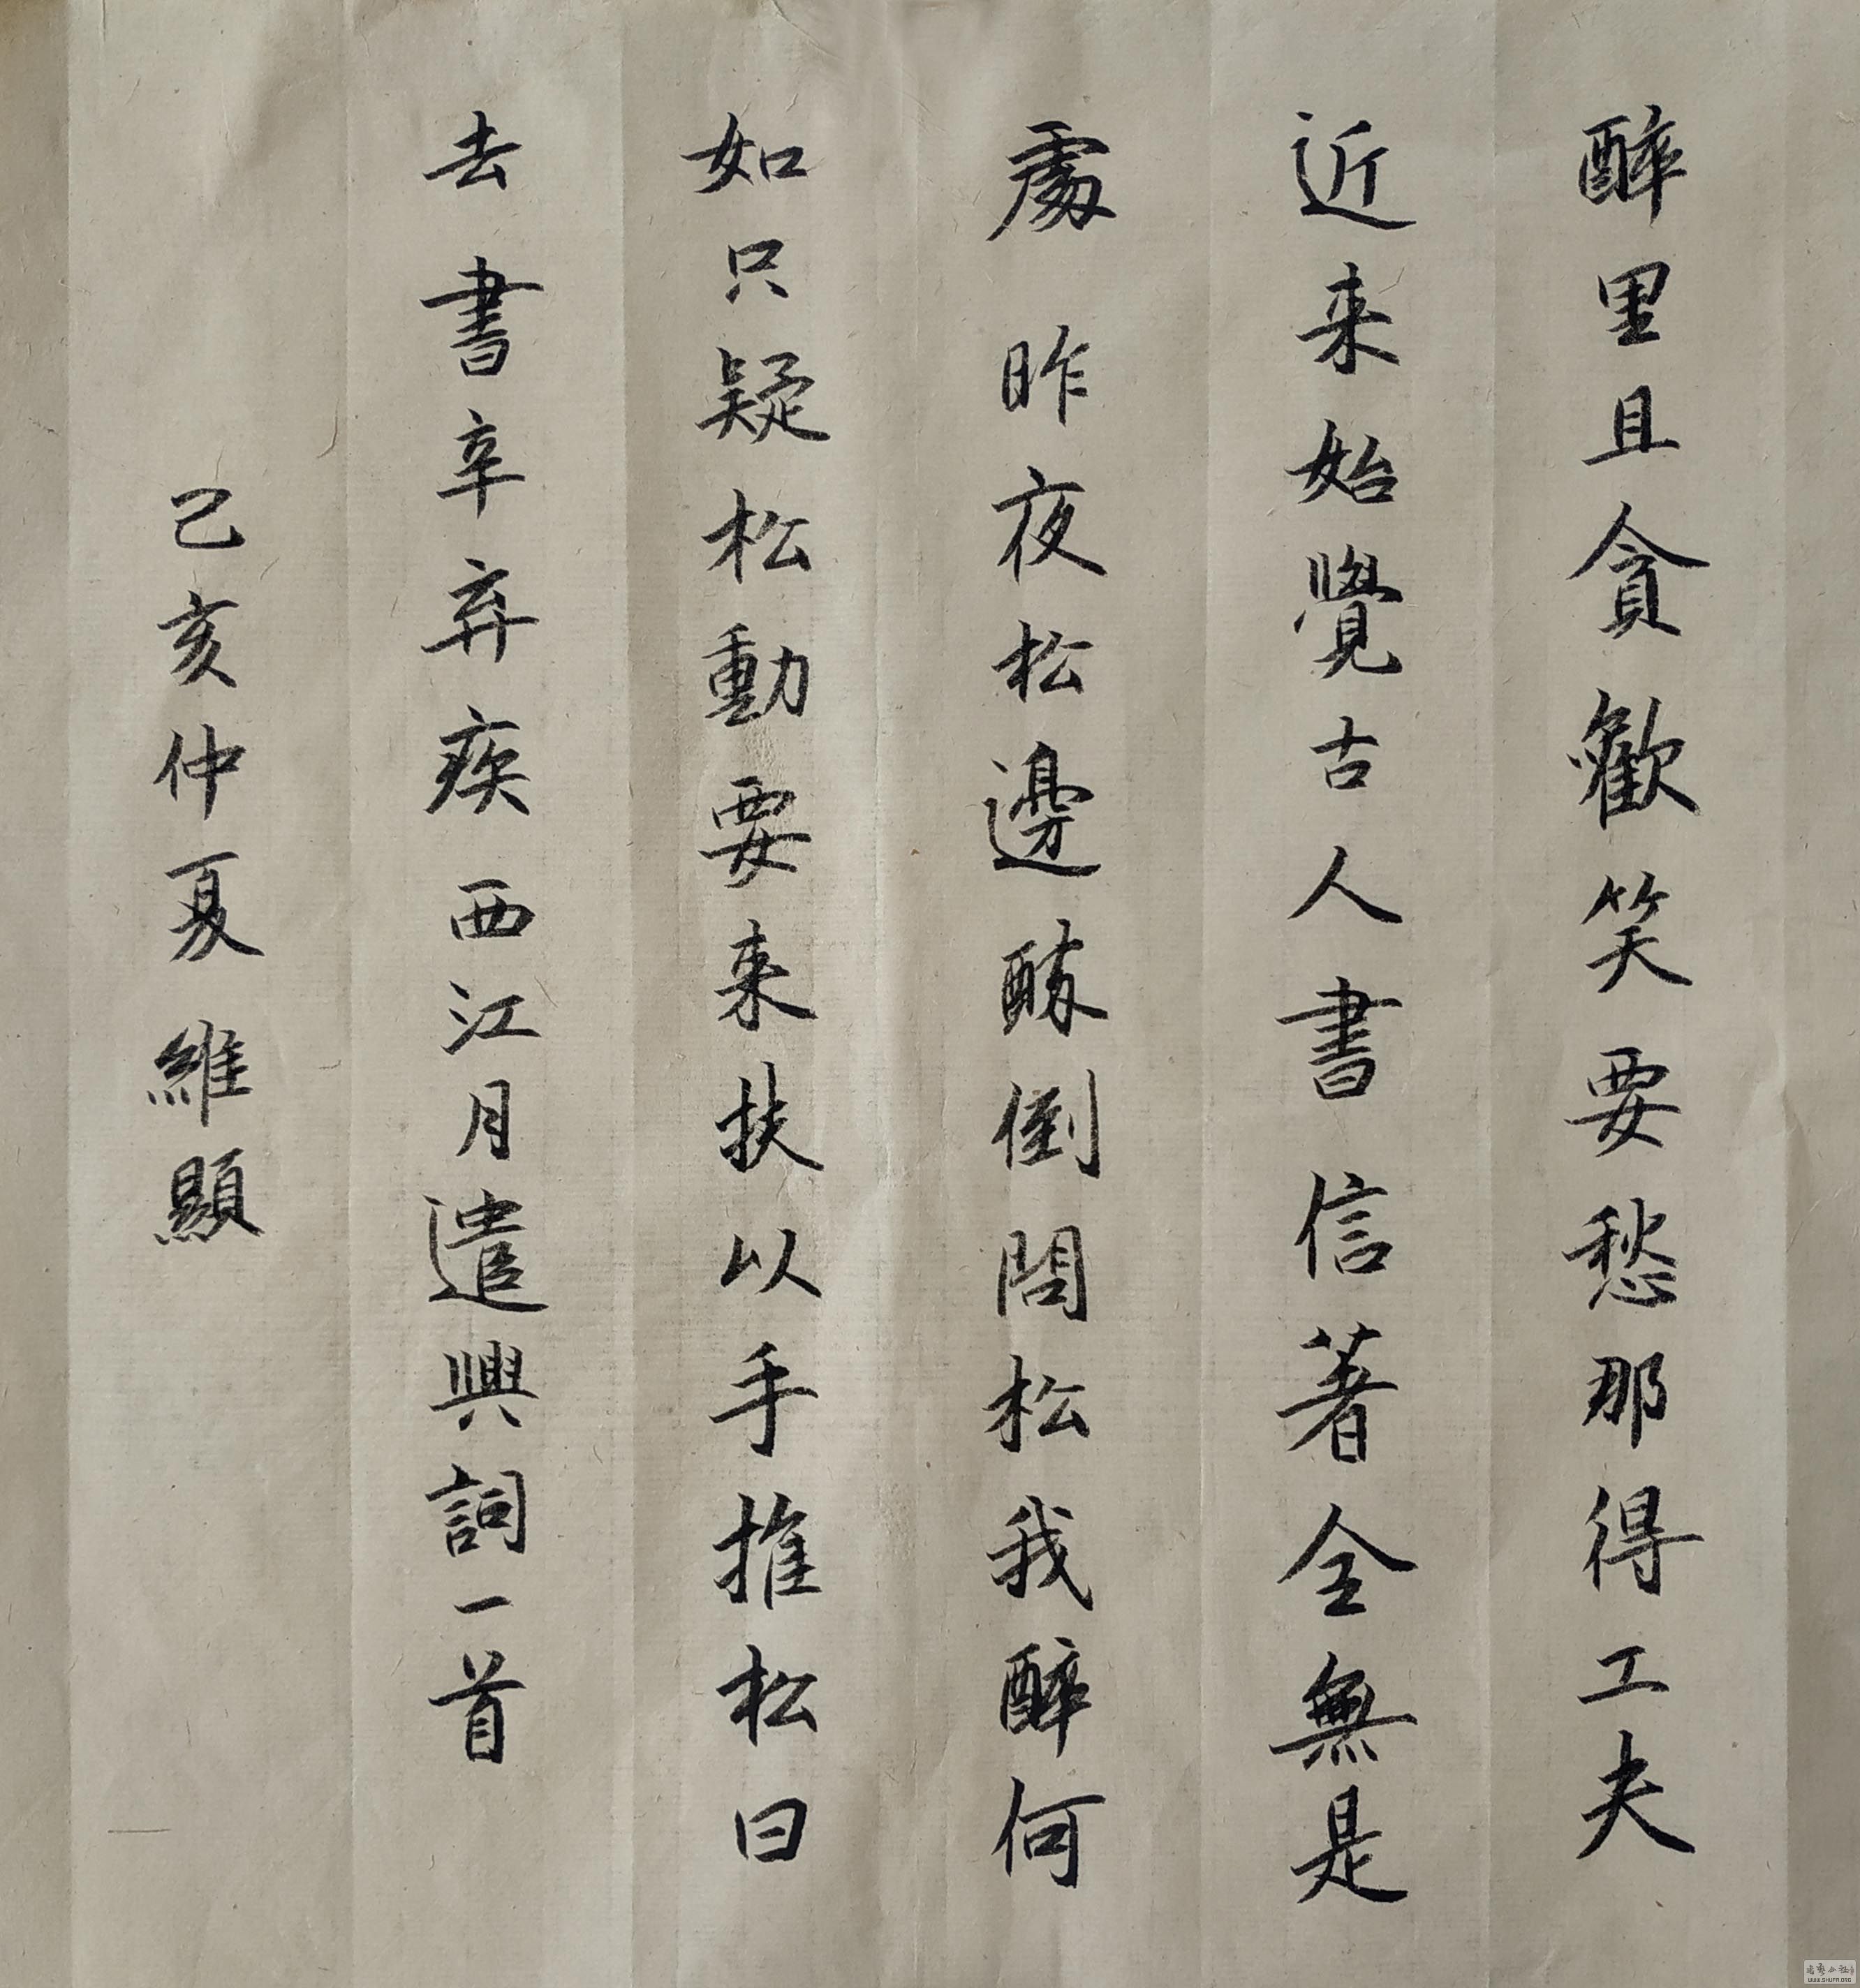 醉里且貪歡笑要愁那得工夫
近来始覺古人書信著全無是
處昨夜松邊醉倒問松我醉何
如只疑松動要来扶以手推松曰
去書辛弃疾西江月遣興詞一首
己亥仲夏維顯
WWW.SHUFA.ORG